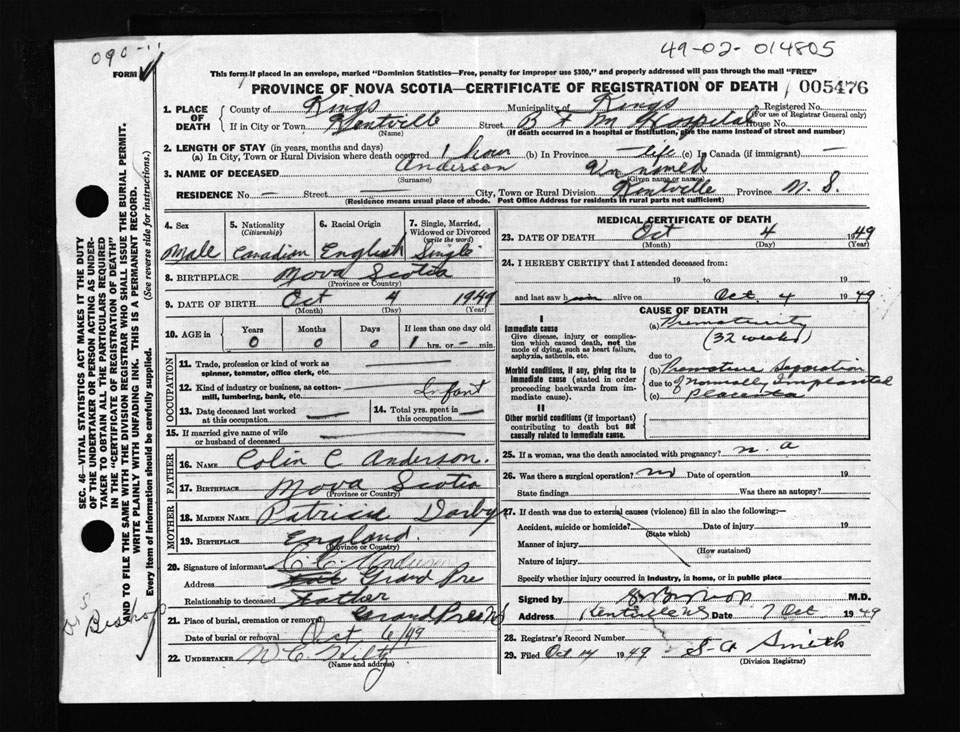 090-11
49-02-014805
FORM
This form if placed in an envelope, marked "Dominion Statistics—Free, penalty for improper use $300," and properly addressed will pass through the mail "FREE"
PROVINCE OF NOVA SCOTIA—CERTIFICATE OF REGISTRATION OF DEATH 005476
1. PLACE OF DEATH
County of Kings Municipality of Kings Registered No.
(For use of Registrar General only)
If in City or Town Kentville Street B + M Hospital House No.
(Name) (If death occurred in a hospital or institution, give the name instead of street and number)
2. LENGTH OF STAY (in years, months and days)
(a) In City, Town or Rural Division where death occurred 1 hour (b) In Province — life (c) In Canada (if immigrant) —
3. NAME OF DECEASED Anderson Un named
(Surname) (Given name or names)
RESIDENCE No. — Street — City, Town or Rural Division Kentville Province N. S.
(Residence means usual place of abode. Post Office Address for residents in rural parts not sufficient)
4. Sex 5. Nationality (Citizenship) 6. Racial Origin 7. Single, Married, Widowed or Divorced (write the word)
Male Canadian English Single
8. BIRTHPLACE Nova Scotia
(Province or Country)
9. DATE OF BIRTH Oct 4 1949
(Month) (Day) (Year)
10. AGE in Years Months Days If less than one day old
0 0 0 1 hrs. or — min.
OCCUPATION
11. Trade, profession or kind of work as spinner, teamster, office clerk, etc. —
12. Kind of industry or business, as cotton-mill, lumbering, bank, etc. Infant
13. Date deceased last worked at this occupation — 14. Total yrs. spent in this occupation —
15. If married give name of wife or husband of deceased —
FATHER
16. NAME Colin C Anderson.
17. BIRTHPLACE Nova Scotia
(Province or Country)
MOTHER
18. MAIDEN NAME Patricia Darby
19. BIRTHPLACE England.
(Province or Country)
20. Signature of informant C. C. Anderson
Address Grand Pre
Relationship to deceased Father
21. Place of burial, cremation or removal Grand Pre N S
Date of burial or removal Oct 6/49
22. UNDERTAKER W C Hiltz
(Name and address)
MEDICAL CERTIFICATE OF DEATH
23. DATE OF DEATH Oct 4 1949
(Month) (Day) (Year)
24. I HEREBY CERTIFY that I attended deceased from:
19 to 19
and last saw him alive on Oct. 4 1949
CAUSE OF DEATH
I
Immediate cause
Give disease, injury or complication which caused death, not the mode of dying, such as heart failure, asphyxia, asthenia, etc.
(a) Prematurity
(32 weeks)
due to
Morbid conditions, if any, giving rise to immediate cause (stated in order proceeding backwards from immediate cause).
(b) Premature Separation
due to of Normally Implanted
(c) Placenta
II
Other morbid conditions (if important) contributing to death but not causally related to immediate cause.
25. If a woman, was the death associated with pregnancy? n. a
26. Was there a surgical operation? no Date of operation 19
State findings Was there an autopsy?
27. If death was due to external causes (violence) fill in also the following:—
Accident, suicide or homicide? Date of injury 19
(State which)
Manner of injury
(How sustained)
Nature of injury
Specify whether injury occurred in industry, in home, or in public place
Signed by Bishop M.D.
Address Kentville NS Date 7 Oct 1949
28. Registrar's Record Number
29. Filed Oct 14 1949 S-A Smith
(Division Registrar)
SEC. 46—VITAL STATISTICS ACT MAKES IT THE DUTY
OF THE UNDERTAKER OR PERSON ACTING AS UNDER-
TAKER TO OBTAIN ALL THE PARTICULARS REQUIRED
IN THE "CERTIFICATE OF REGISTRATION OF DEATH"
AND TO FILE THE SAME WITH THE DIVISION REGISTRAR WHO SHALL ISSUE THE BURIAL PERMIT.
WRITE PLAINLY WITH UNFADING INK. THIS IS A PERMANENT RECORD.
Every item of information should be carefully supplied. (See reverse side for instructions.)
Bishop